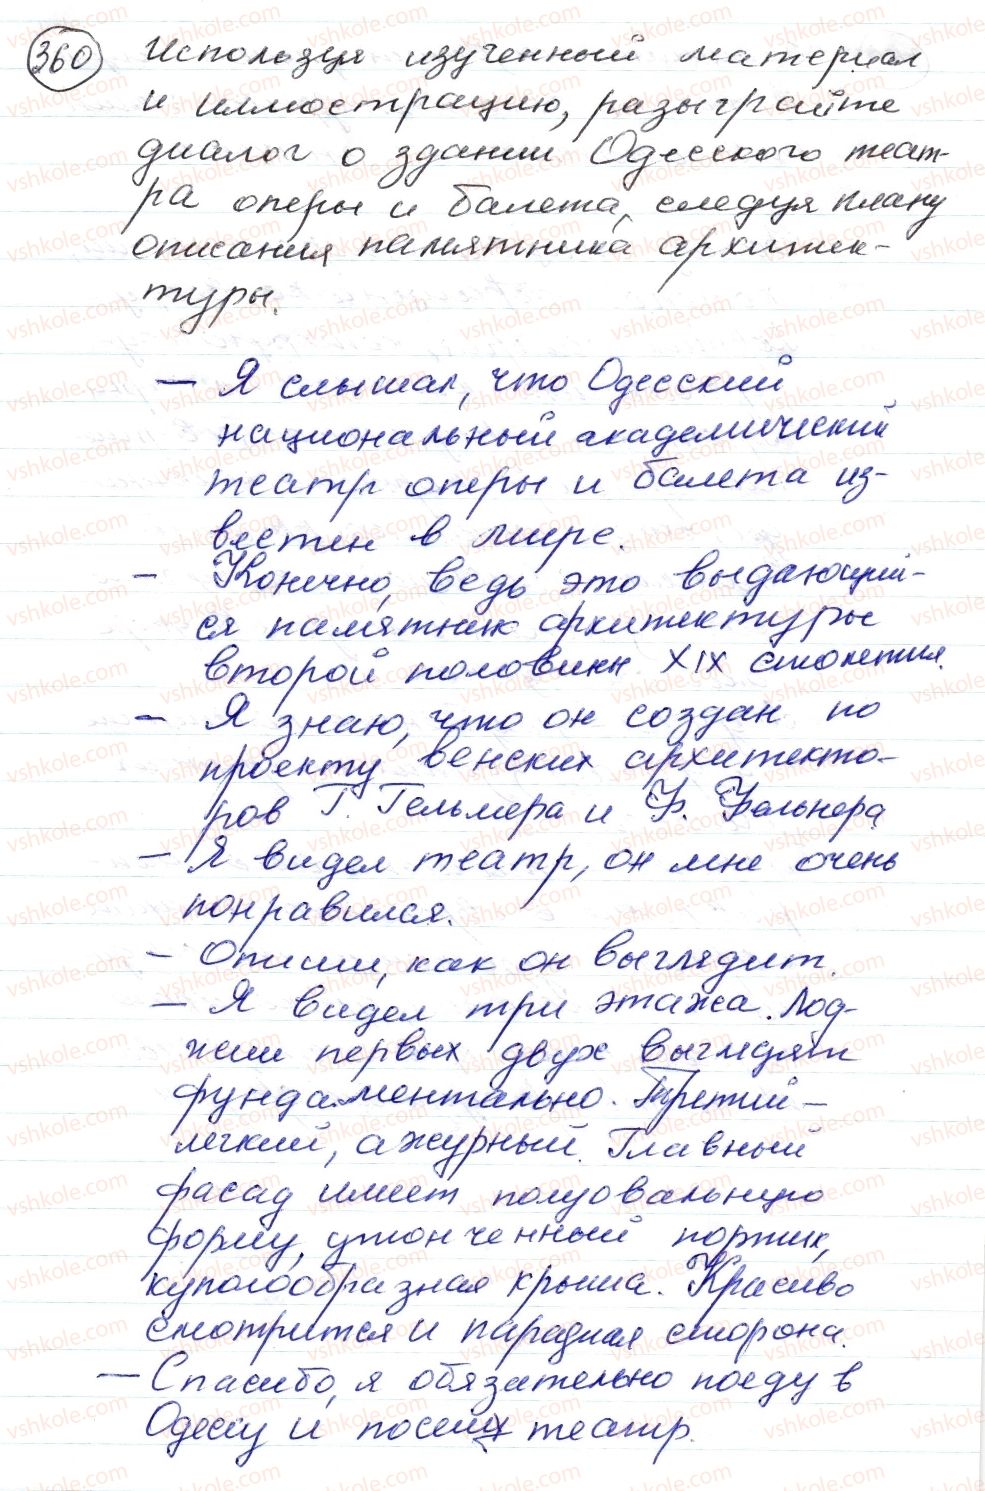 360 Используя изученный материал
и иллюстрацию, разыграйте
диалог о здании Одесского теат-
ра оперы и балета, следуя плану
описания памятника архитек-
туры.
— Я слышал, что Одесский
национальный академический
театр оперы и балета из-
вестен в мире.
— Конечно, ведь это выдающий-
ся памятник архитектуры
второй половины XIX столетия.
— Я знаю, что он создан по
проекту венских архитекто-
ров Г. Гельмера и Ф. Фельнера.
— Я видел театр, он мне очень
понравился.
— Опиши, как он выглядит.
— Я видел три этажа. Лод-
жии первых двух выглядят
фундаментально. Третий —
легкий, ажурный. Главный
фасад имеет полуовальную
форму, утонченный портик,
куполообразная крыша. Красиво
смотрится и парадная сторона.
— Спасибо, я обязательно поеду в
Одессу и театр.